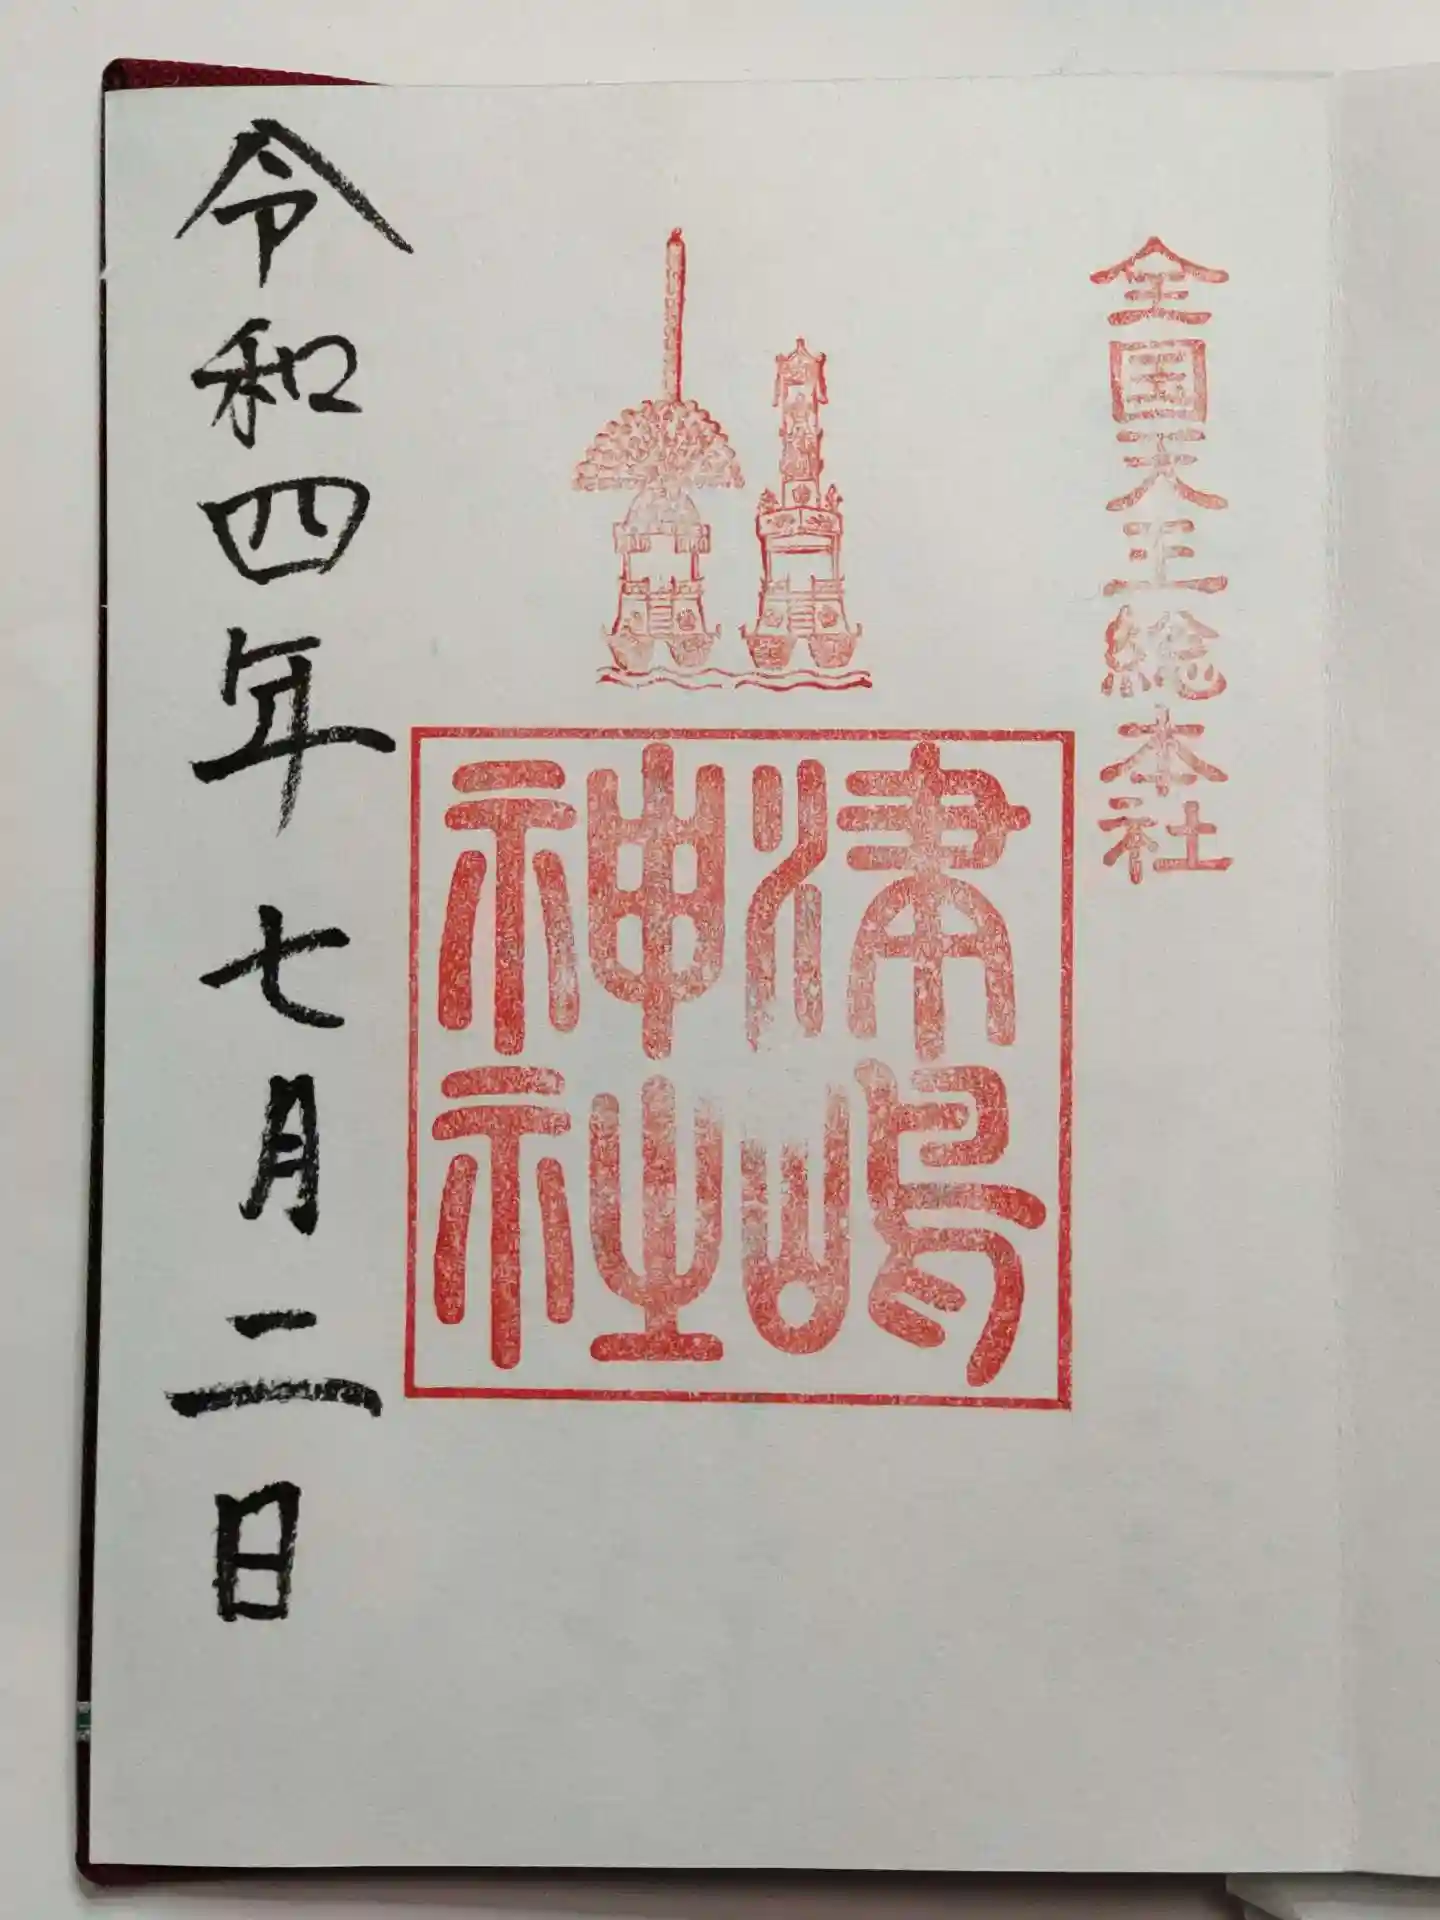 全国天王総本社
津嶋
神社
令和四年七月二日